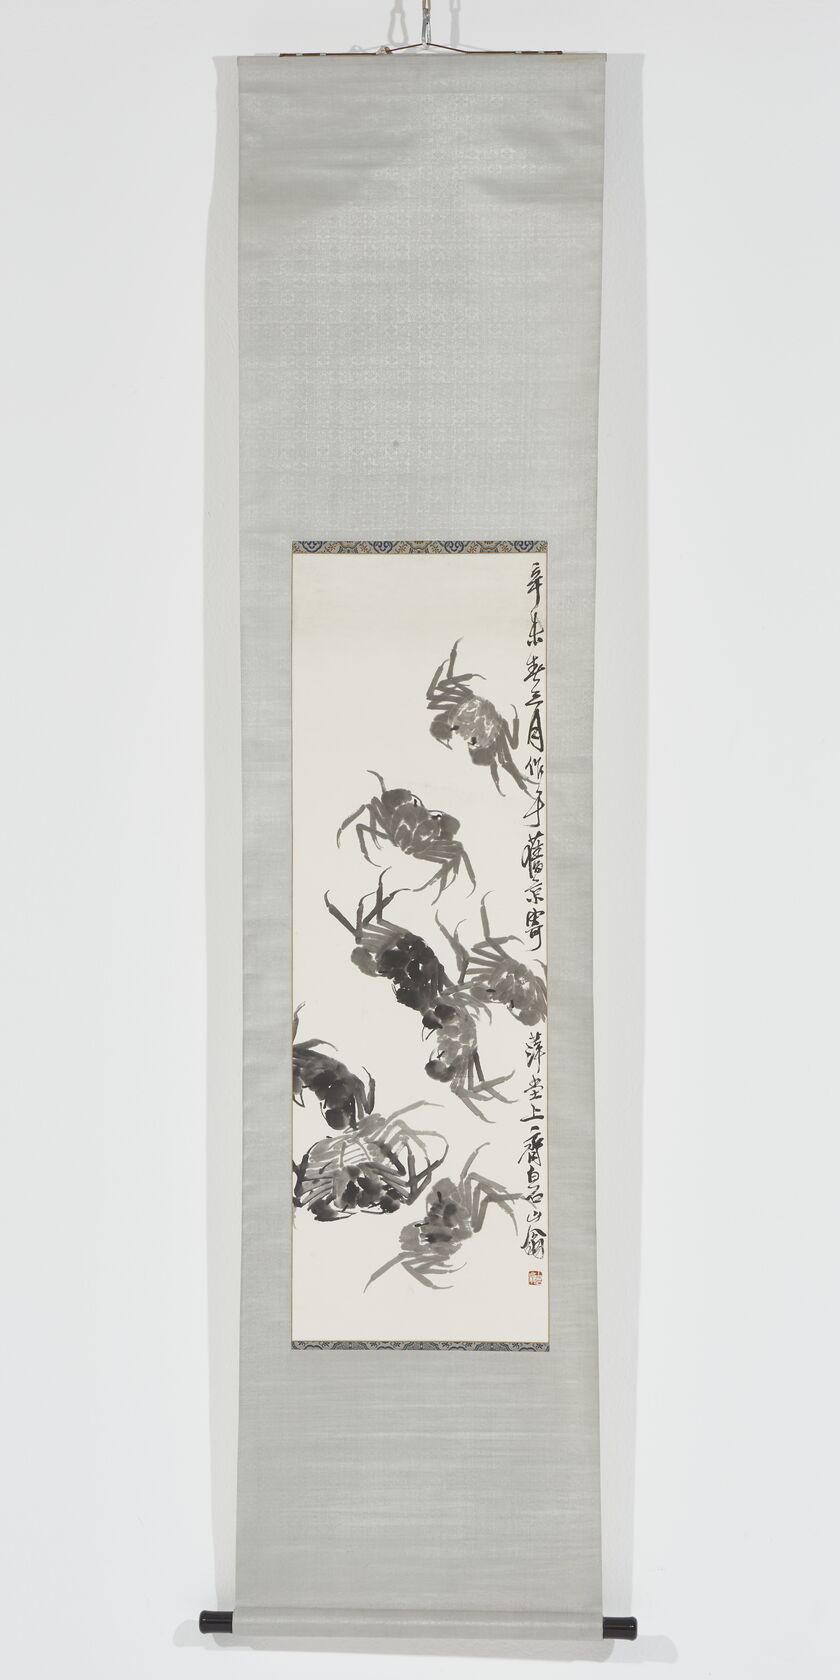 辛未春三月作于舊京寄
萍堂上齊白石山翁